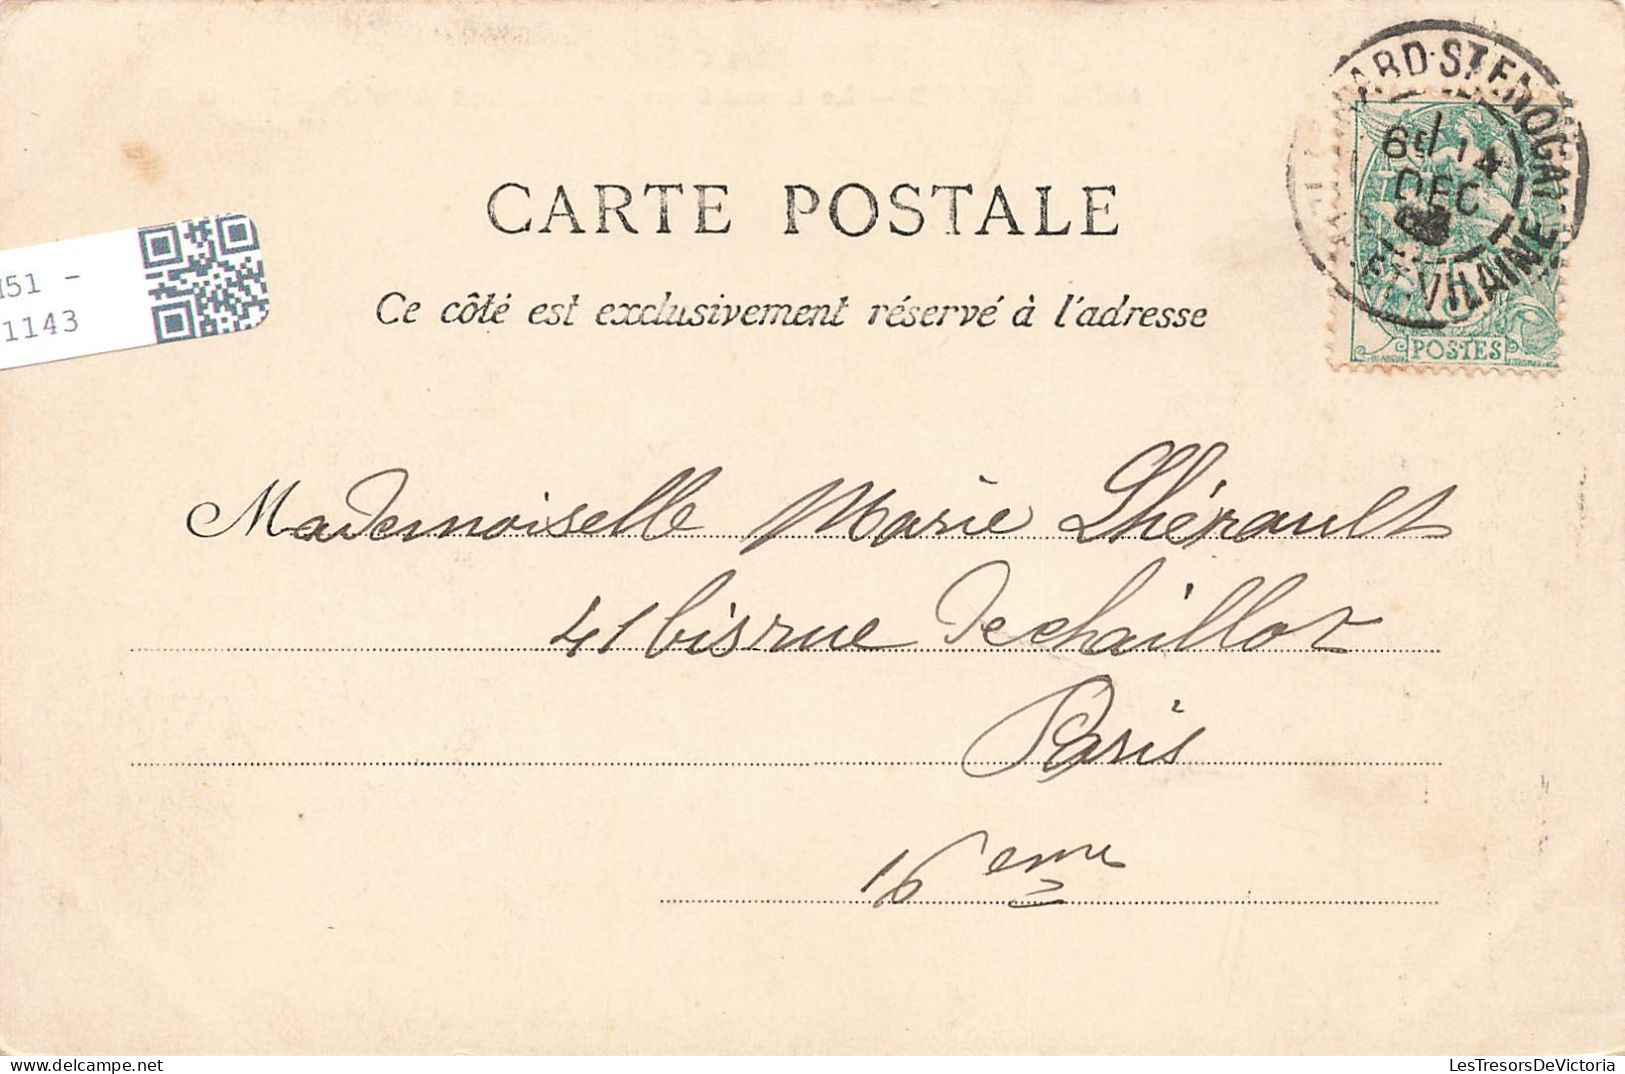 CARTE POSTALE
Ce côté est exclusivement réservé à l'adresse
51 -
1143
ARD-ST ENOGAT
14
DEC
VILAINE
POSTES
Mademoiselle Marie Lhérault
41 bis rue de chaillot
Paris
16 eme
LesTresorsDeVictoria